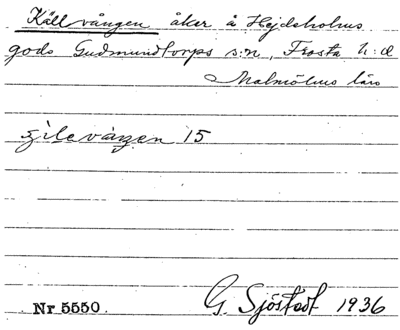 Källvången åker å Hejdsholms
gods Gudmundtorps s:n, Frosta h:d
Malmöhus län
15
Nr 5550. G. Sjöstedt 1936